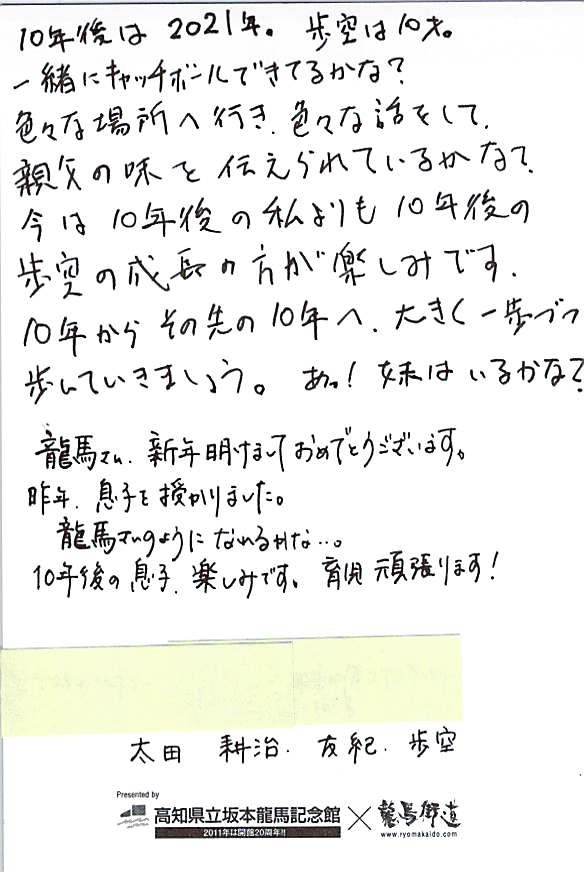 10年後は2021年。 歩空は10才。
一緒にキャッチボールできてるかな?
色々な場所へ行き、色々な話をして、
親父の味を伝えられているかな?
今は10年後の私よりも10年後の
歩空の成長の方が楽しみです。
10年からその先の10年へ、大きく一歩づつ
歩んでいきましょう。 あっ! 妹はいるかな?
龍馬さん、新年明けましておめでとうございます。
昨年、息子を授かりました。
龍馬さんのようになれるかな…。
10年後の息子、楽しみです。育児頑張ります!
太田 耕治、友紀、歩空
Presented by
高知県立坂本龍馬記念館 × 龍馬街道
2011年は開館20周年!!
www.ryomakaido.com